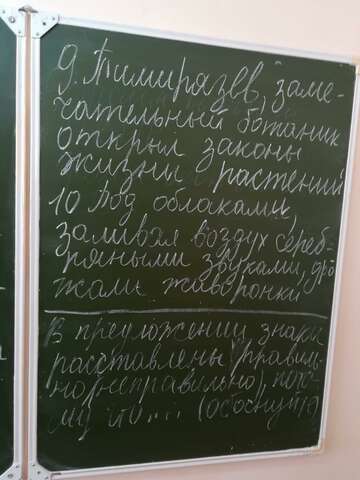 9. Тимирязев, заме-
чательный ботаник
открыл законы
жизни растений
10 Под облаками,
заливая воздух сереб-
ряными звуками, дро
жали жаворонки
В предложении знаки
расставлены (правиль-
но/неправильно), пото-
му что... (обоснуйте)